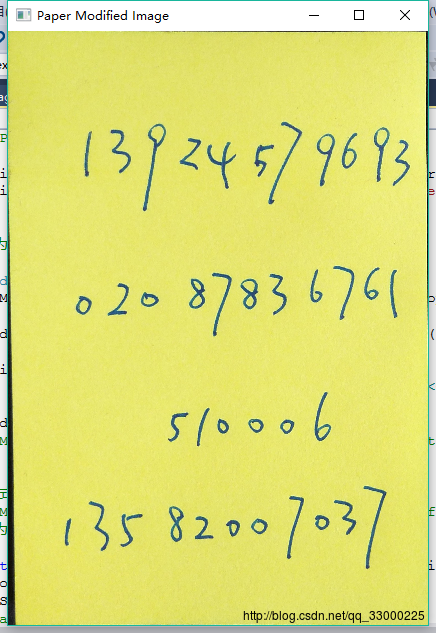 Paper Modified Image
13924579693
020 87836761
510006
13582007037
http://blog.csdn.net/qq_33000225